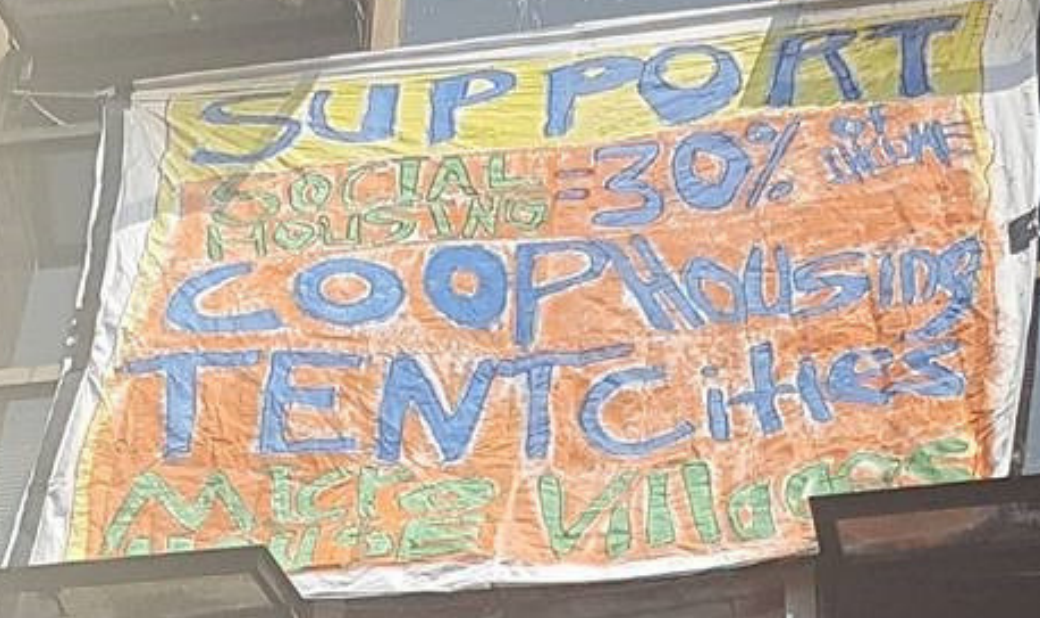 SUPPORT
SOCIAL HOUSING = 30% OF INCOME
COOP HOUSING
TENT Cities
MICRO HOUSE Villages